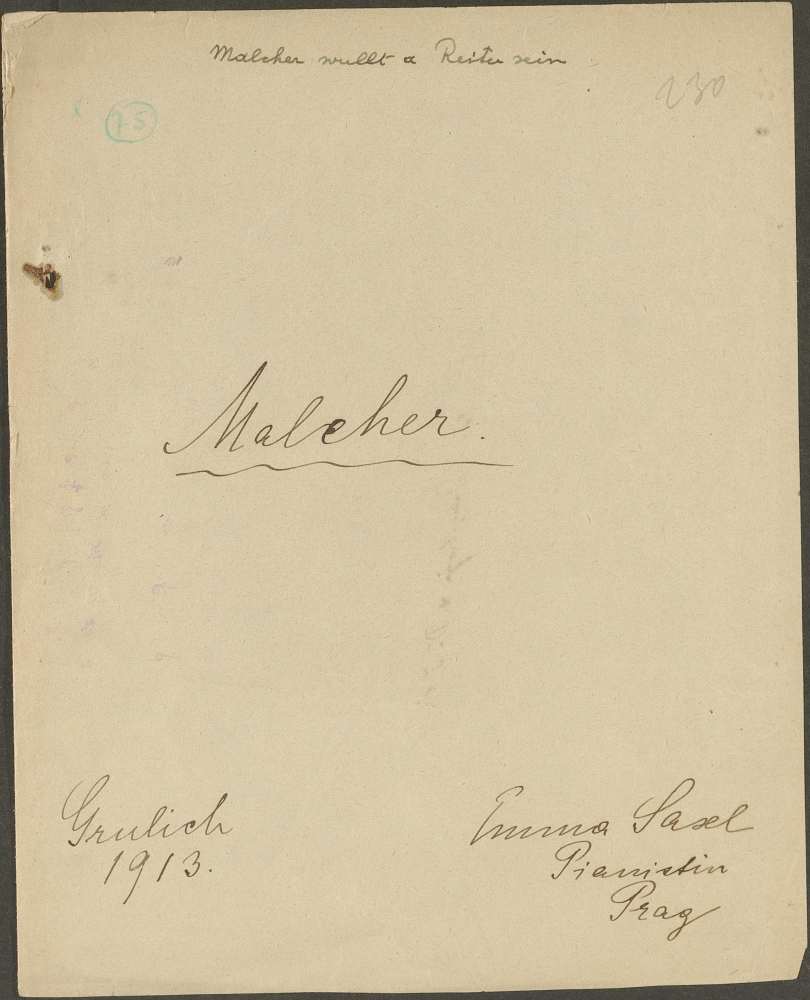 Malcher wullt a Reiter sein
230
75
Malcher.
Grulich
1913.
Emma Saxel
Pianistin
Prag